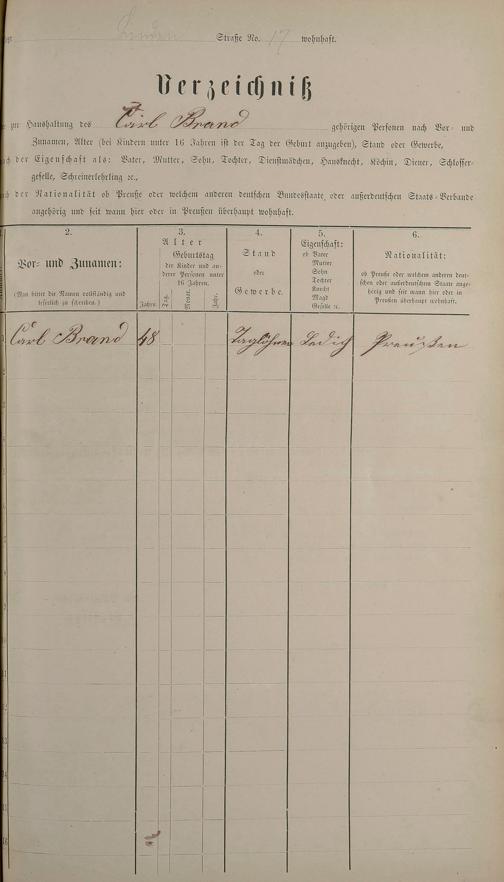 Linden Straße No. 17 wohnhaft.
Verzeichniß
zur Haushaltung des Carl Brand gehörigen Personen nach Vor- und
Zunamen, Alter (bei Kindern unter 16 Jahren ist der Tag der Geburt anzugeben), Stand oder Gewerbe,
nach der Eigenschaft als: Vater, Mutter, Sohn, Tochter, Dienstmädchen, Hausknecht, Köchin, Diener, Schlosser-
geselle, Schreinerlehrling ꝛc.,
nach der Nationalität ob Preuße oder welchem anderen deutschen Bundesstaate oder außerdeutschen Staats-Verbande
angehörig und seit wann hier oder in Preußen überhaupt wohnhaft.
2.
Vor- und Zunamen:
(Man bittet die Namen vollständig und
leserlich zu schreiben.)
3.
Alter
Geburtstag
der Kinder und an-
derer Personen unter
16 Jahren.
Jahre.
Tag.
Monat.
Jahr.
4.
Stand
oder
Gewerbe.
5.
Eigenschaft:
ob Vater
Mutter
Sohn
Tochter
Knecht
Magd
Geselle ꝛc.
6.
Nationalität:
ob Preuße oder welchem anderen deut-
schen oder außerdeutschen Staate ange-
hörig und seit wann hier oder in
Preußen überhaupt wohnhaft.
Carl Brand 48 Taglöhner Ledig Preußen